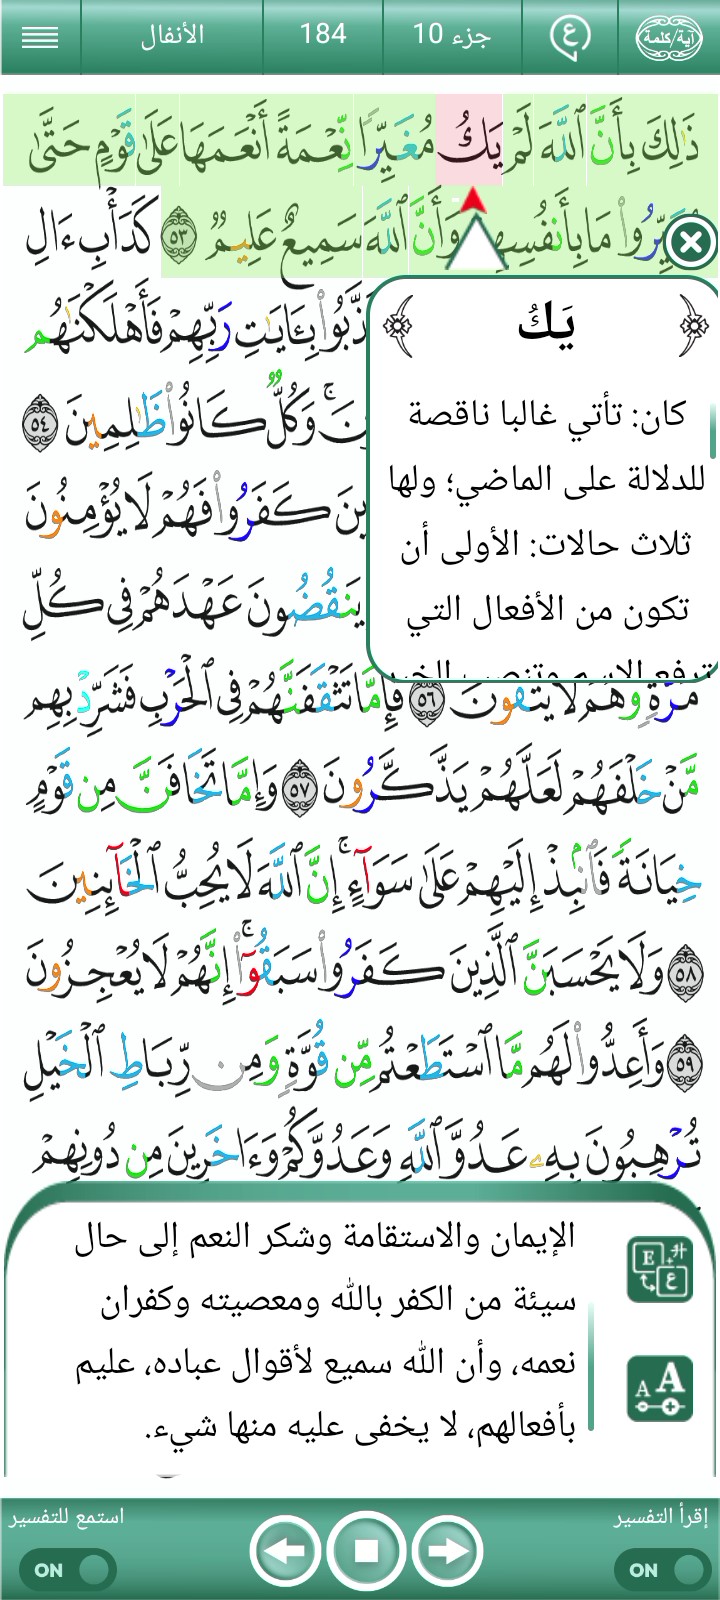 آية/كلمة
ع
جزء 10
184
الأنفال
ذَٰلِكَ بِأَنَّ ٱللَّهَ لَمْ يَكُ مُغَيِّرًا نِّعْمَةً أَنْعَمَهَا عَلَىٰ قَوْمٍ حَتَّىٰ
مَا بِأَنفُسِهِ وَأَنَّ ٱللَّهَ سَمِيعٌ عَلِيمٌ ٥٣ كَدَأْبِ ءَالِ
ذَّبُوا۟ بِـَٔايَـٰتِ رَبِّهِمْ فَأَهْلَكْنَـٰهُم
وَكُلٌّ كَانُوا۟ ظَـٰلِمِينَ ٥٤
كَفَرُوا۟ فَهُمْ لَا يُؤْمِنُونَ
يَنقُضُونَ عَهْدَهُمْ فِى كُلِّ
مَرَّةٍ وَهُمْ لَا يَتَّقُونَ ٥٦ فَإِمَّا تَثْقَفَنَّهُمْ فِى ٱلْحَرْبِ فَشَرِّدْ بِهِم
مَّنْ خَلْفَهُمْ لَعَلَّهُمْ يَذَّكَّرُونَ ٥٧ وَإِمَّا تَخَافَنَّ مِن قَوْمٍ
خِيَانَةً فَٱنۢبِذْ إِلَيْهِمْ عَلَىٰ سَوَآءٍ ۚ إِنَّ ٱللَّهَ لَا يُحِبُّ ٱلْخَآئِنِينَ
٥٨ وَلَا يَحْسَبَنَّ ٱلَّذِينَ كَفَرُوا۟ سَبَقُوٓا۟ ۚ إِنَّهُمْ لَا يُعْجِزُونَ
٥٩ وَأَعِدُّوا۟ لَهُم مَّا ٱسْتَطَعْتُم مِّن قُوَّةٍ وَمِن رِّبَاطِ ٱلْخَيْلِ
تُرْهِبُونَ بِهِۦ عَدُوَّ ٱللَّهِ وَعَدُوَّكُمْ وَءَاخَرِينَ مِن دُونِهِمْ
يَكُ
كان: تأتي غالبا ناقصة
للدلالة على الماضي؛ ولها
ثلاث حالات: الأولى أن
تكون من الأفعال التي
ترفع الاسم وتنصب الخبر
الإيمان والاستقامة وشكر النعم إلى حال
سيئة من الكفر بالله ومعصيته وكفران
نعمه، وأن الله سميع لأقوال عباده، عليم
بأفعالهم، لا يخفى عليه منها شيء.
إقرأ التفسير
ON
استمع للتفسير
ON